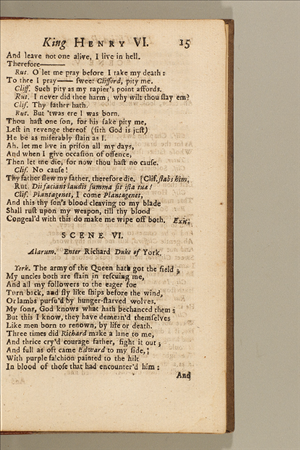 King HENRY VI. 15
And leave not one alive, I live in hell.
Therefore——
Rut. O let me pray before I take my death:
To thee I pray—— sweet Clifford, pity me.
Cliff. Such pity as my rapier's point affords.
Rut. I never did thee harm; why wilt thou slay em?
Clif. Thy father hath.
Rut. But 'twas ere I was born.
Thou hast one son, for his sake pity me,
Lest in revenge thereof (sith God is just)
He be as miserably slain as I.
Ah, let me live in prison all my days,
And when I give occasion of offence,
Then let me die, for now thou hast no cause.
Clif. No cause!
Thy father slew my father, therefore die. [Clif. stabs him.
Rut. Dii faciant laudis summa sit ista tuæ!
Clif. Plantagenet, I come Plantagenet,
And this thy son's blood cleaving to my blade
Shall rust upon my weapon, till thy blood
Congeal'd with this do make me wipe off both. Exit.
SCENE VI.
Alarum. Enter Richard Duke of York.
York. The army of the Queen hath got the field;
My uncles both are slain in rescuing me,
And all my followers to the eager foe
Turn back, and fly like ships before the wind,
Or lambs pursu'd by hunger-starved wolves.
My sons, God knows what hath bechanced them:
But this I know, they have demean'd themselves
Like men born to renown, by life or death.
Three times did Richard make a lane to me,
And thrice cry'd courage father, fight it out;
And full as oft came Edward to my side,
With purple falchion painted to the hilt
In blood of those that had encounter'd him:
And